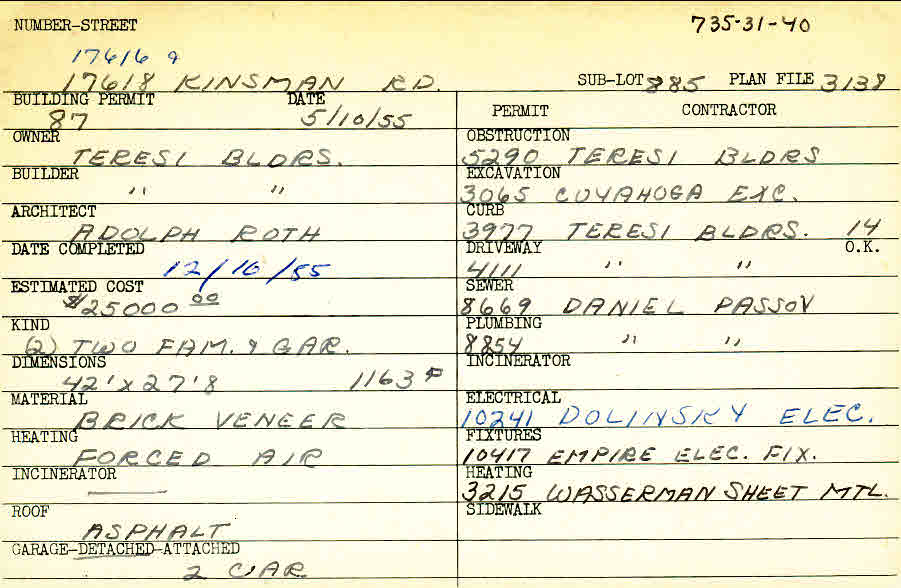 NUMBER-STREET 735-31-40
17616 &
17618 KINSMAN RD. SUB-LOT 885 PLAN FILE 3138
BUILDING PERMIT DATE
87 5/10/55
OWNER
TERESI BLDRS.
BUILDER
" "
ARCHITECT
ADOLPH ROTH
DATE COMPLETED
12/16/55
ESTIMATED COST
$25000 00
KIND
(2) TWO FAM. & GAR.
DIMENSIONS
42' x 27'8 1163
MATERIAL
BRICK VENEER
HEATING
FORCED AIR
INCINERATOR
—
ROOF
ASPHALT
GARAGE-DETACHED-ATTACHED
2 CAR
PERMIT CONTRACTOR
OBSTRUCTION
5290 TERESI BLDRS
EXCAVATION
3065 CUYAHOGA EXC.
CURB
3977 TERESI BLDRS. 14
DRIVEWAY O.K.
4111 " "
SEWER
8669 DANIEL PASSOV
PLUMBING
8854 " "
INCINERATOR
ELECTRICAL
10241 DOLINSKY ELEC.
FIXTURES
10417 EMPIRE ELEC. FIX.
HEATING
3215 WASSERMAN SHEET MTL.
SIDEWALK